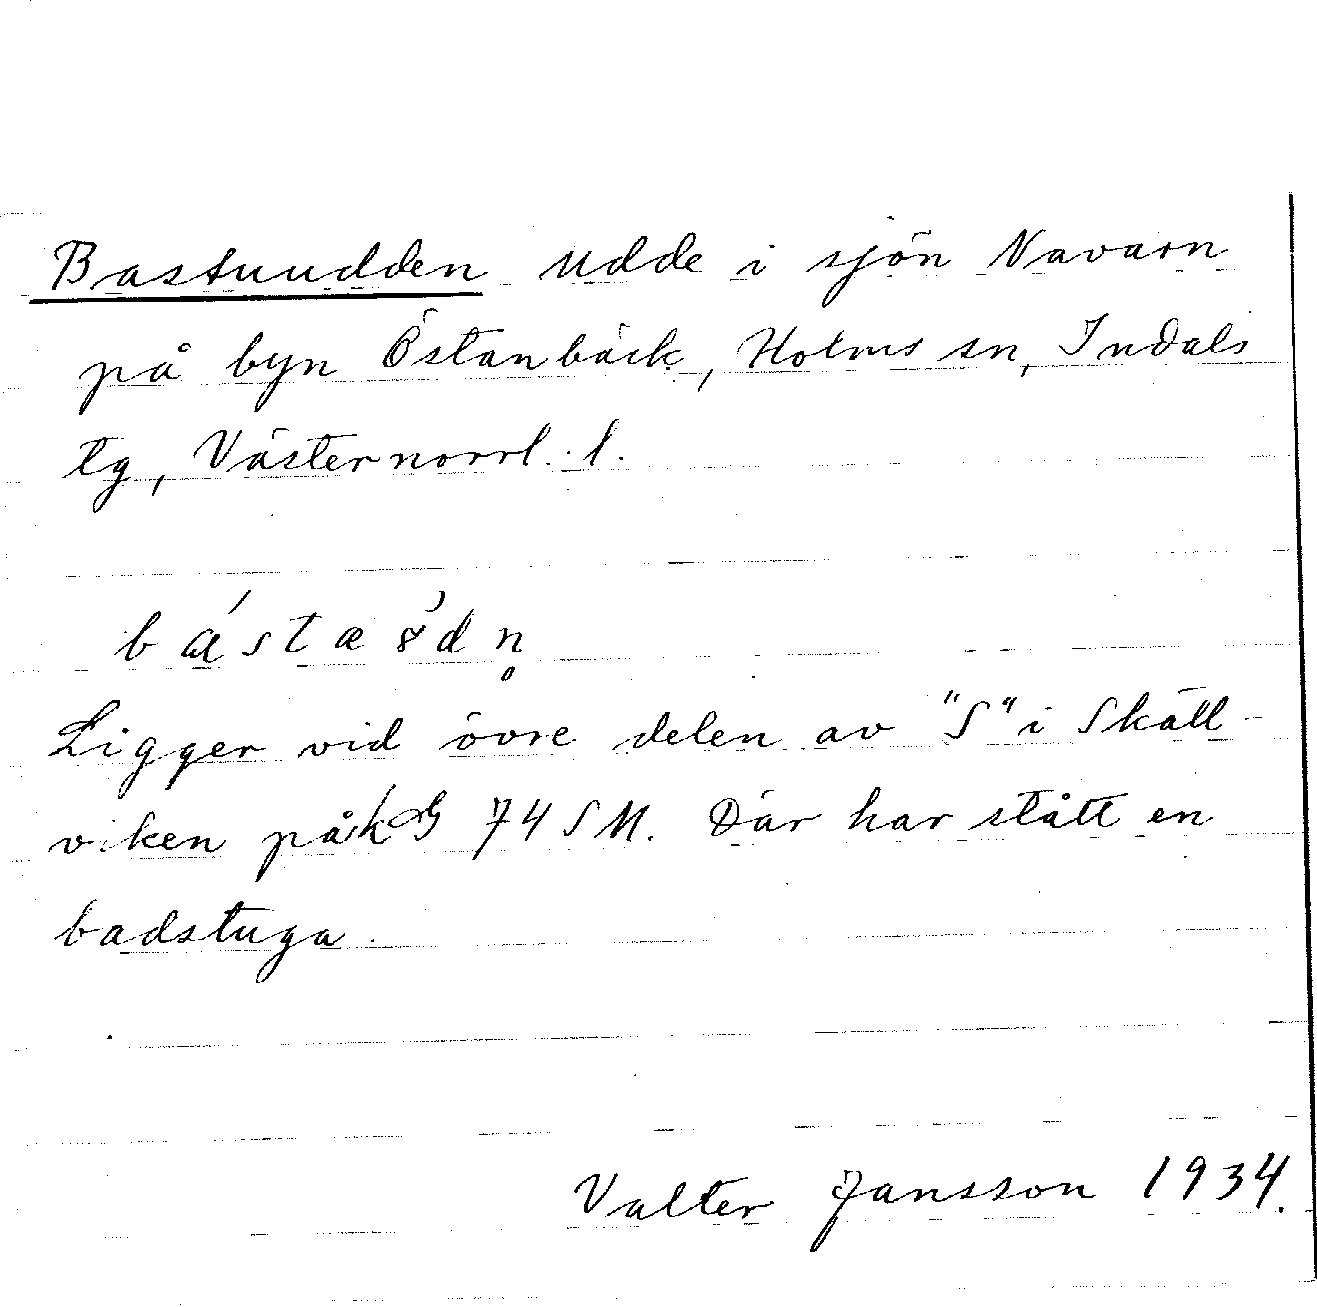 Bastuudden udde i sjön Navarn
på byn Östanbäck, Holms sn, Indals
tg, Västernorrl. l.
Ligger vid övre delen av "S" i Skäll-
viken på 74 SM. Där har stått en
badstuga.
Valter Jansson 1934.